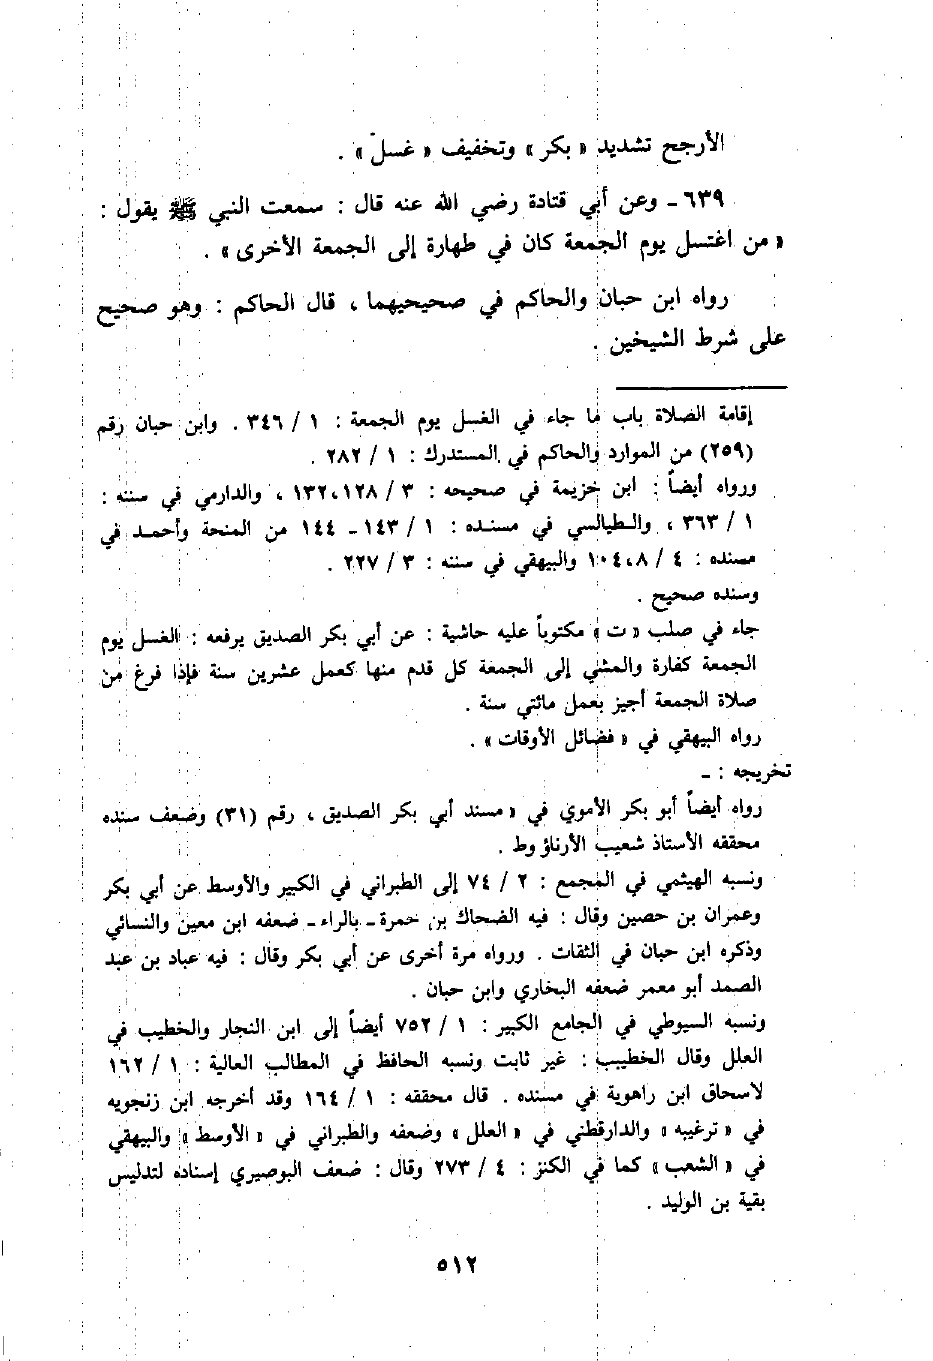 الأرجح تشديد « بكر » وتخفيف « غسل » .
٦٣٩ـ وعن أبي قتادة رضي الله عنه قال : سمعت النبي ﷺ يقول :
« من اغتسل يوم الجمعة كان في طهارة إلى الجمعة الأخرى » .
رواه ابن حبان والحاكم في صحيحيهما ، قال الحاكم : وهو صحيح
على شرط الشيخين .
إقامة الصلاة باب ما جاء في الغسل يوم الجمعة : ١ / ٣٤٦ . وابن حبان رقم
(٢٥٩) من الموارد والحاكم في المستدرك : ١ / ٢٨٢ .
ورواه أيضاً : ابن خزيمة في صحيحه : ٣ / ١٢٨ ، ١٣٢ ، والدارمي في سننه :
١ / ٣٦٣ ، والطيالسي في مسنده : ١ / ١٤٣ ـ ١٤٤ من المنحة وأحمد في
مسنده : ٤ / ٨ ، ١٠٤ والبيهقي في سننه : ٣ / ٢٢٧ .
وسنده صحيح .
جاء في صلب « ت » مكتوباً عليه حاشية : عن أبي بكر الصديق يرفعه : الغسل يوم
الجمعة كفارة والمشي إلى الجمعة كل قدم منها كعمل عشرين سنة فإذا فرغ من
صلاة الجمعة أجيز بعمل مائتي سنة .
رواه البيهقي في « فضائل الأوقات » .
تخريجه : ـ
رواه أيضاً أبو بكر الأموي في « مسند أبي بكر الصديق ، رقم (٣١) وضعف سنده
محققه الأستاذ شعيب الأرناؤوط .
ونسبه الهيثمي في المجمع : ٢ / ٧٤ إلى الطبراني في الكبير والأوسط عن أبي بكر
وعمران بن حصين وقال : فيه الضحاك بن حمرة ـ بالراء ـ ضعفه ابن معين والنسائي
وذكره ابن حبان في الثقات . ورواه مرة أخرى عن أبي بكر وقال : فيه عباد بن عبد
الصمد أبو معمر ضعفه البخاري وابن حبان .
ونسبه السيوطي في الجامع الكبير : ١ / ٧٥٢ أيضاً إلى ابن النجار والخطيب في
العلل وقال الخطيب : غير ثابت ونسبه الحافظ في المطالب العالية : ١ / ١٦٢
لاسحاق ابن راهوية في مسنده . قال محققه : ١ / ١٦٤ وقد أخرجه ابن زنجويه
في « ترغيبه » والدارقطني في « العلل » وضعفه والطبراني في « الأوسط » والبيهقي
في « الشعب » كما في الكنز : ٤ / ٢٧٣ وقال : ضعف البوصيري إسناده لتدليس
بقية بن الوليد .
٥١٢